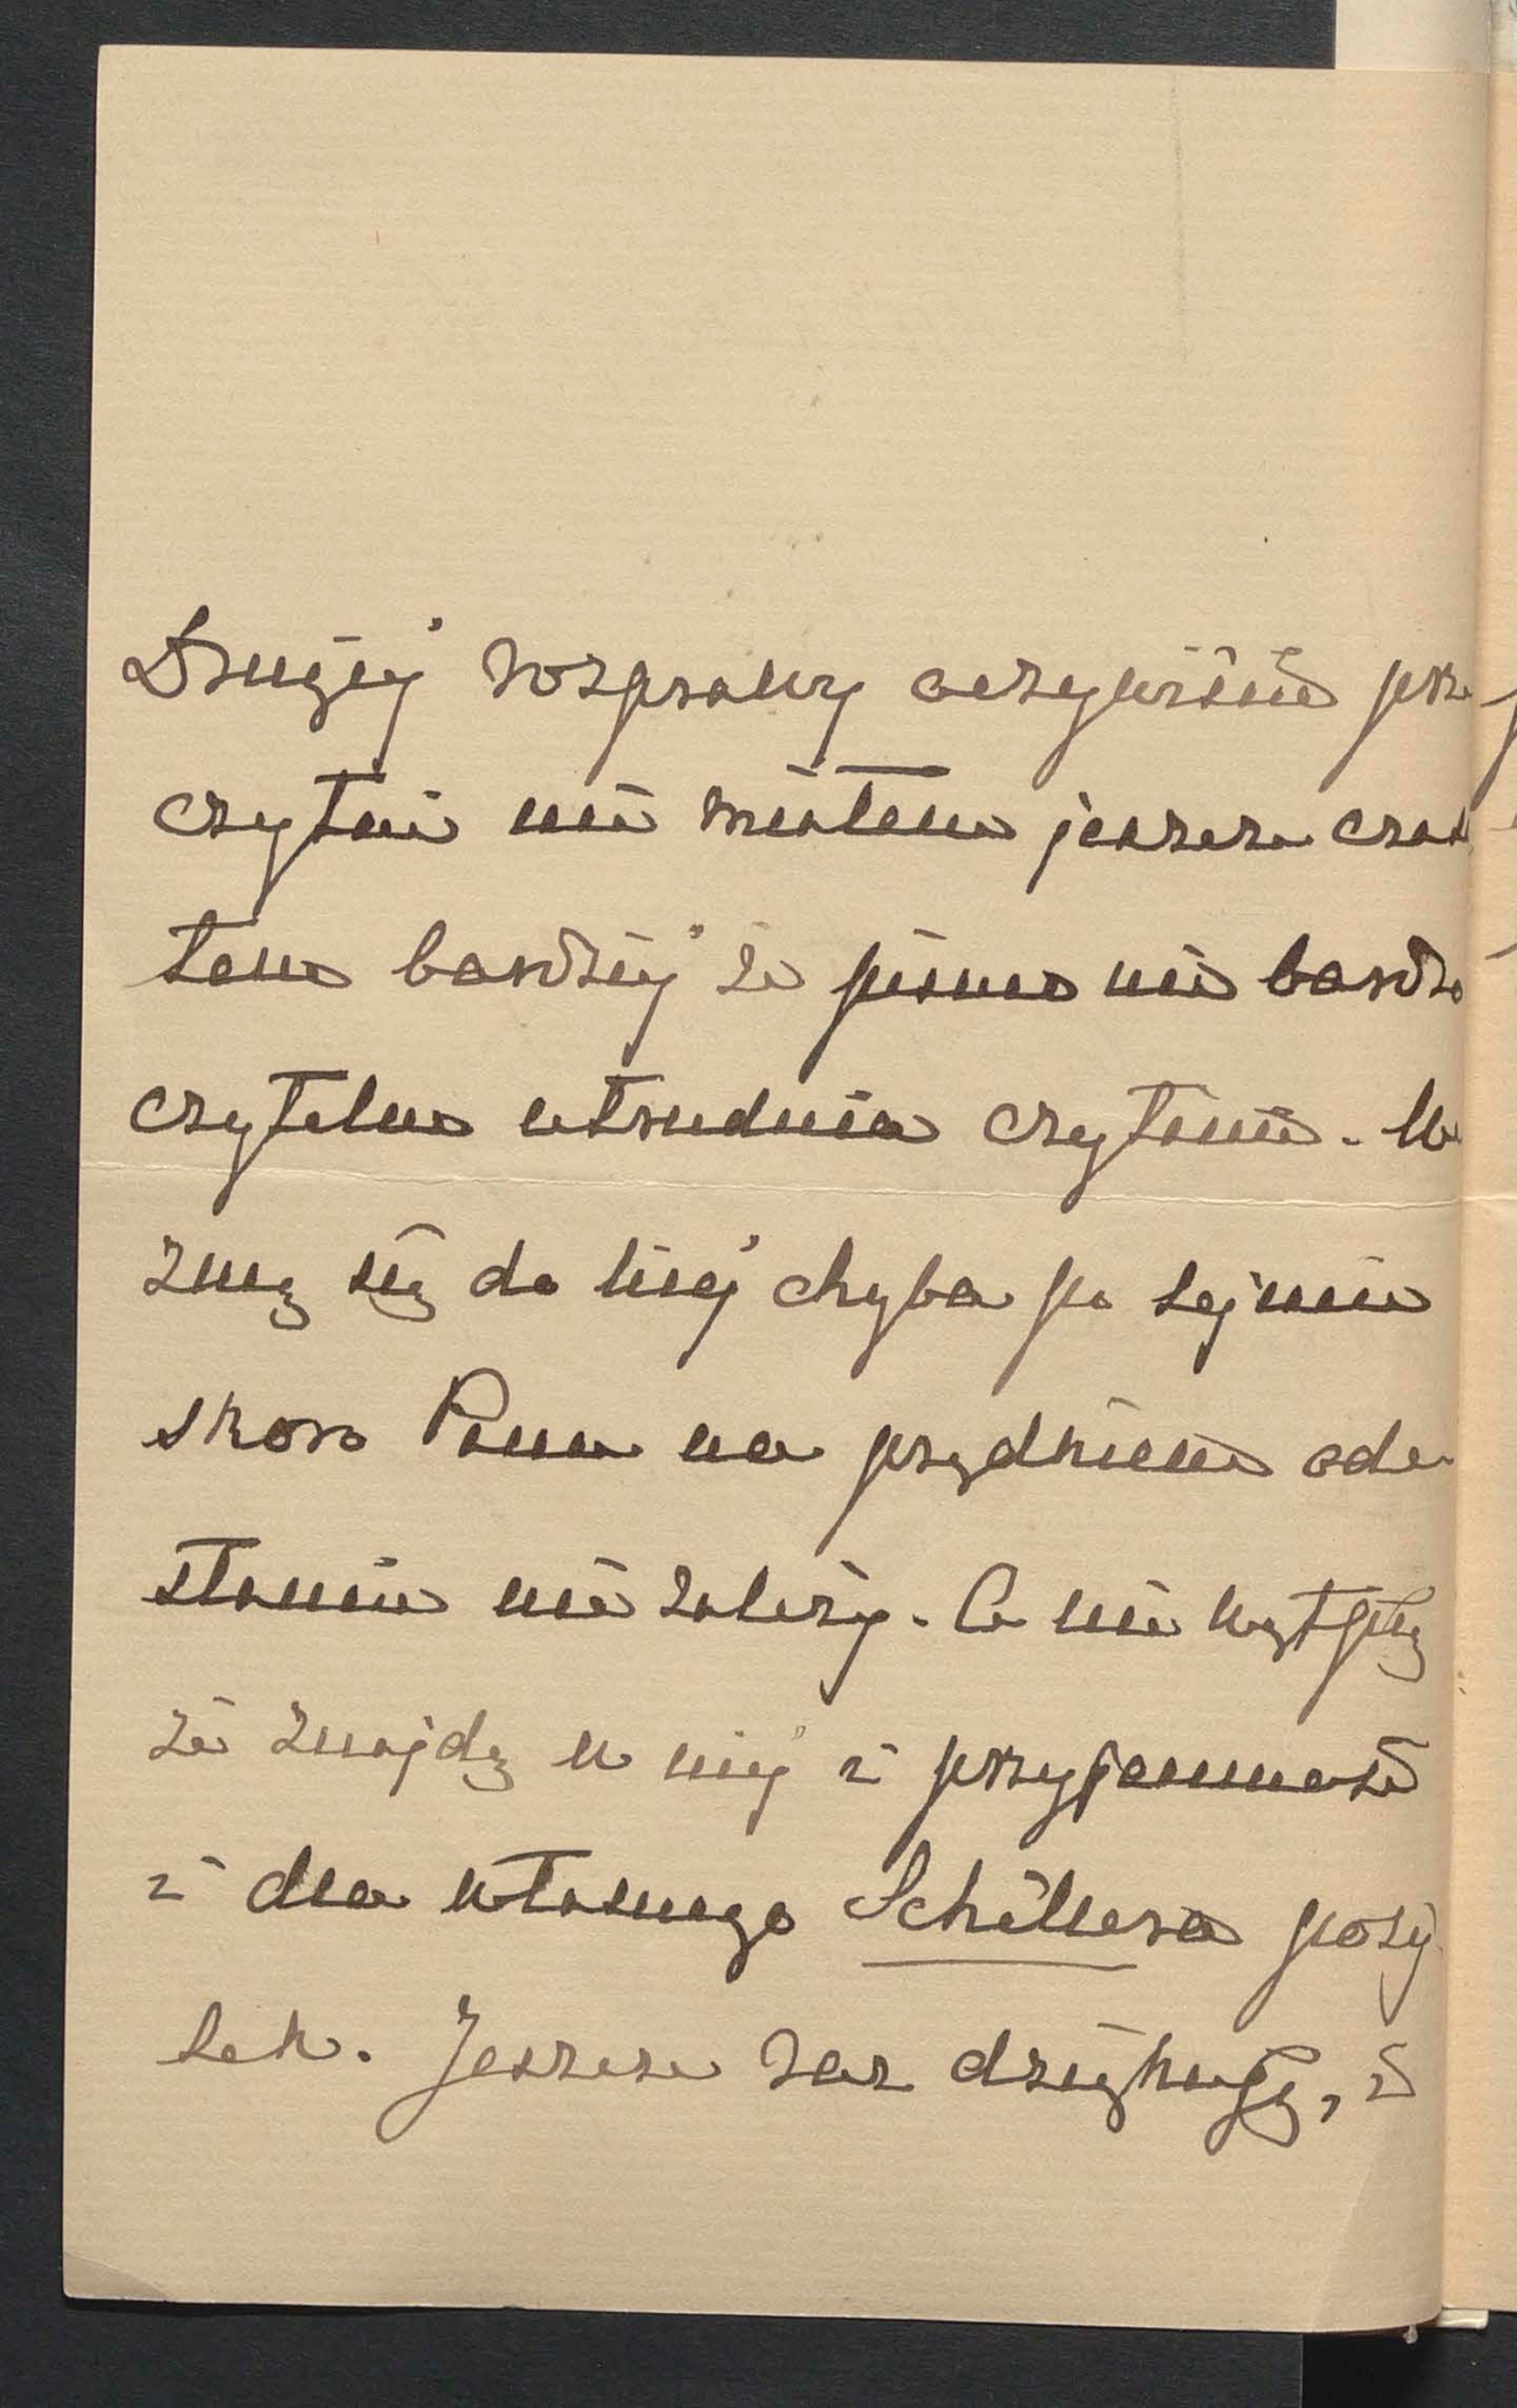 Drugiej rozprawy oczywiście prze
czytać nie miałem jeszcze czasu
tem bardziej że pismo nie bardzo
czytelne utrudnia czytanie. We
zmę się do niej chyba po sejmie
skoro Panu na prędkiem ode
słaniu nie zależy. Co nie wątpię
że znajdę w niej i przyjemność
i dla własnego Schillera poży
tek. Jeszcze raz dziękuję, i